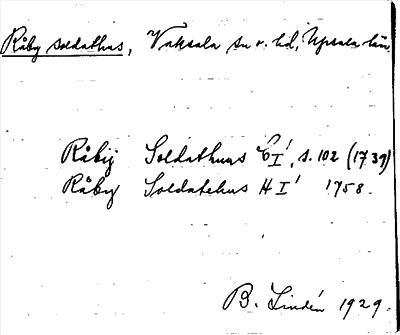 Råby soldathus, Vaksala sn o. hd, Upsala län.
Råbij Soldathuus C I, s. 102 (1739)
Råby Soldatehus H I 1758.
B. Lindén 1929.